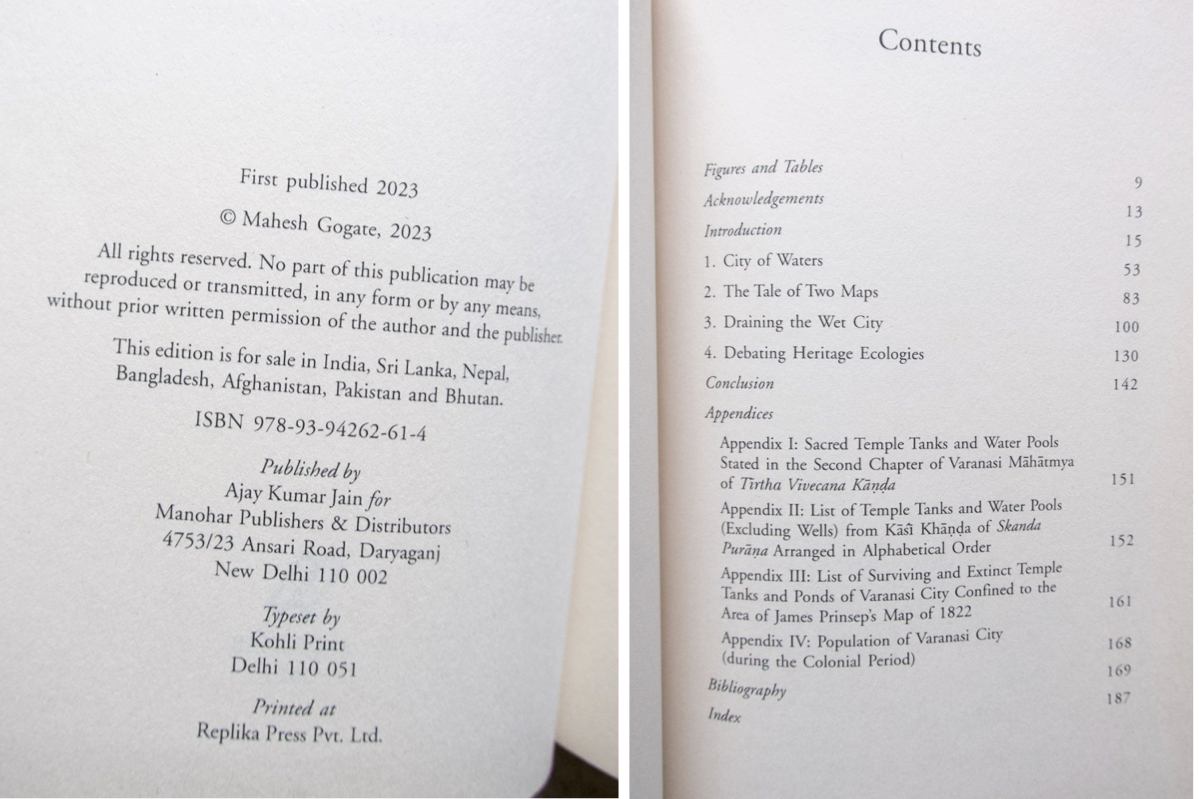 First published 2023
© Mahesh Gogate, 2023
All rights reserved. No part of this publication may be
reproduced or transmitted, in any form or by any means,
without prior written permission of the author and the publisher.
This edition is for sale in India, Sri Lanka, Nepal,
Bangladesh, Afghanistan, Pakistan and Bhutan.
ISBN 978-93-94262-61-4
Published by
Ajay Kumar Jain for
Manohar Publishers & Distributors
4753/23 Ansari Road, Daryaganj
New Delhi 110 002
Typeset by
Kohli Print
Delhi 110 051
Printed at
Replika Press Pvt. Ltd.
Contents
Figures and Tables 9
Acknowledgements 13
Introduction 15
1. City of Waters 53
2. The Tale of Two Maps 83
3. Draining the Wet City 100
4. Debating Heritage Ecologies 130
Conclusion 142
Appendices
Appendix I: Sacred Temple Tanks and Water Pools
Stated in the Second Chapter of Varanasi Māhātmya
of Tīrtha Vivecana Kāṇḍa 151
Appendix II: List of Temple Tanks and Water Pools
(Excluding Wells) from Kāśī Khāṇḍa of Skanda
Purāṇa Arranged in Alphabetical Order 152
Appendix III: List of Surviving and Extinct Temple
Tanks and Ponds of Varanasi City Confined to the
Area of James Prinsep's Map of 1822 161
Appendix IV: Population of Varanasi City
(during the Colonial Period) 168
Bibliography 169
Index 187